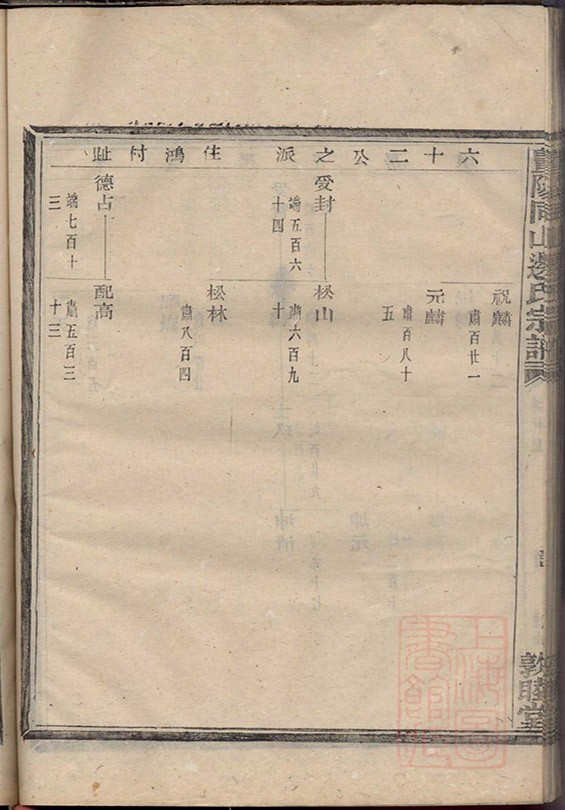 暨陽同山邊氏宗譜
敦睦堂
六十二公派之住鴻付趾
祝麟
肅百廿一
元麟
肅百八十
五
愛封
端五百六
十四
松山
肅六百九
十
松林
肅八百四
德占
端七百十
三
配高
肅五百三
十三
上海圖
書館藏